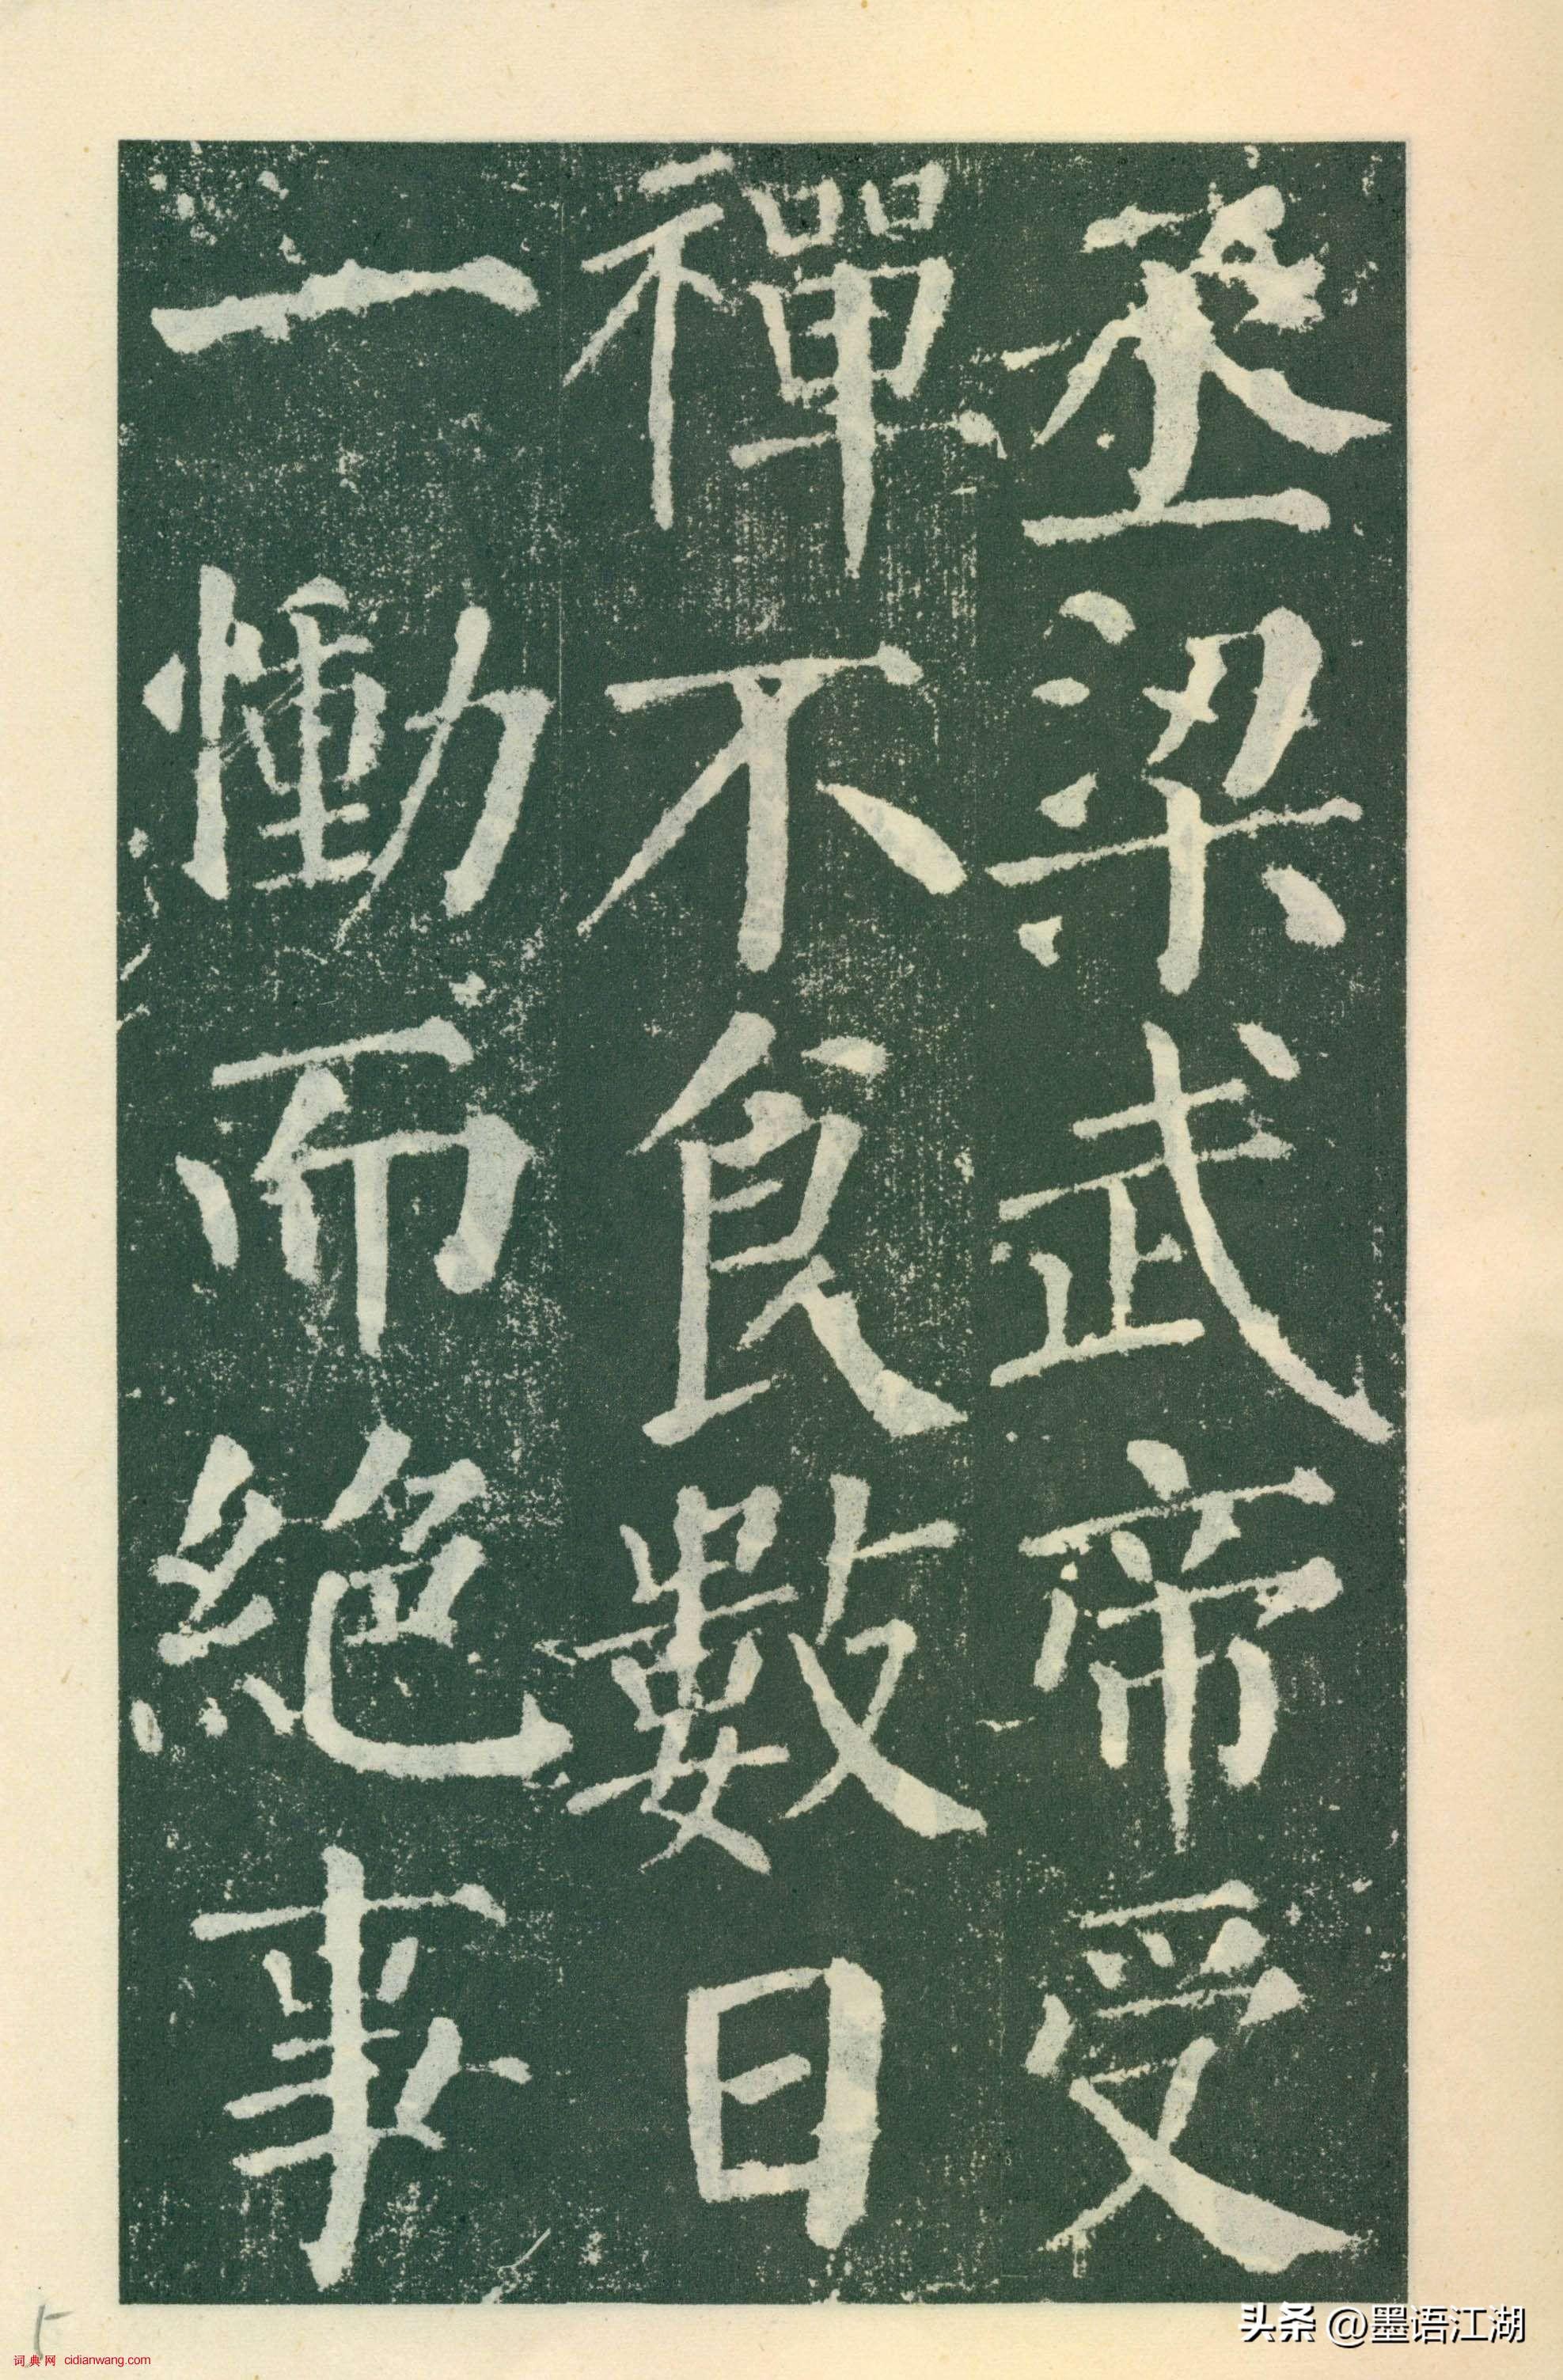 丞梁武帝受
禪不食數日
一慟而絕事
头条 @墨语江湖
词典网 cidianwang.com